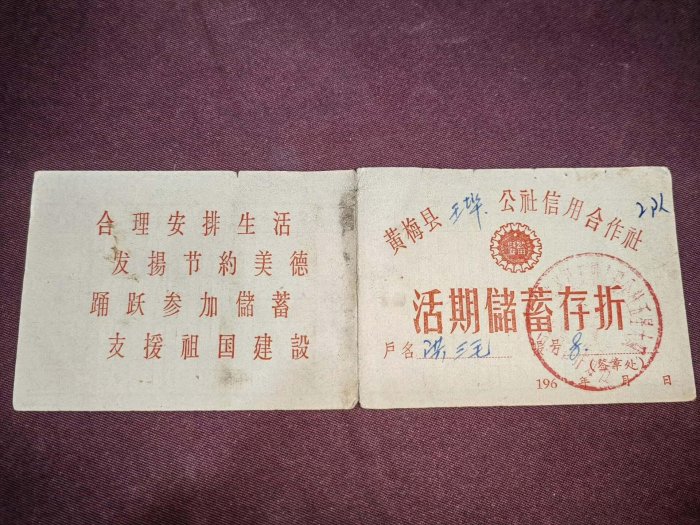 合理安排生活
发揚节約美德
踊跃参加儲蓄
支援祖国建設
黄梅县 公社信用合作社
2队
儲蓄
活期儲蓄存折
戶名 洪三毛 号 8
(簽章处)
196 年 月 日